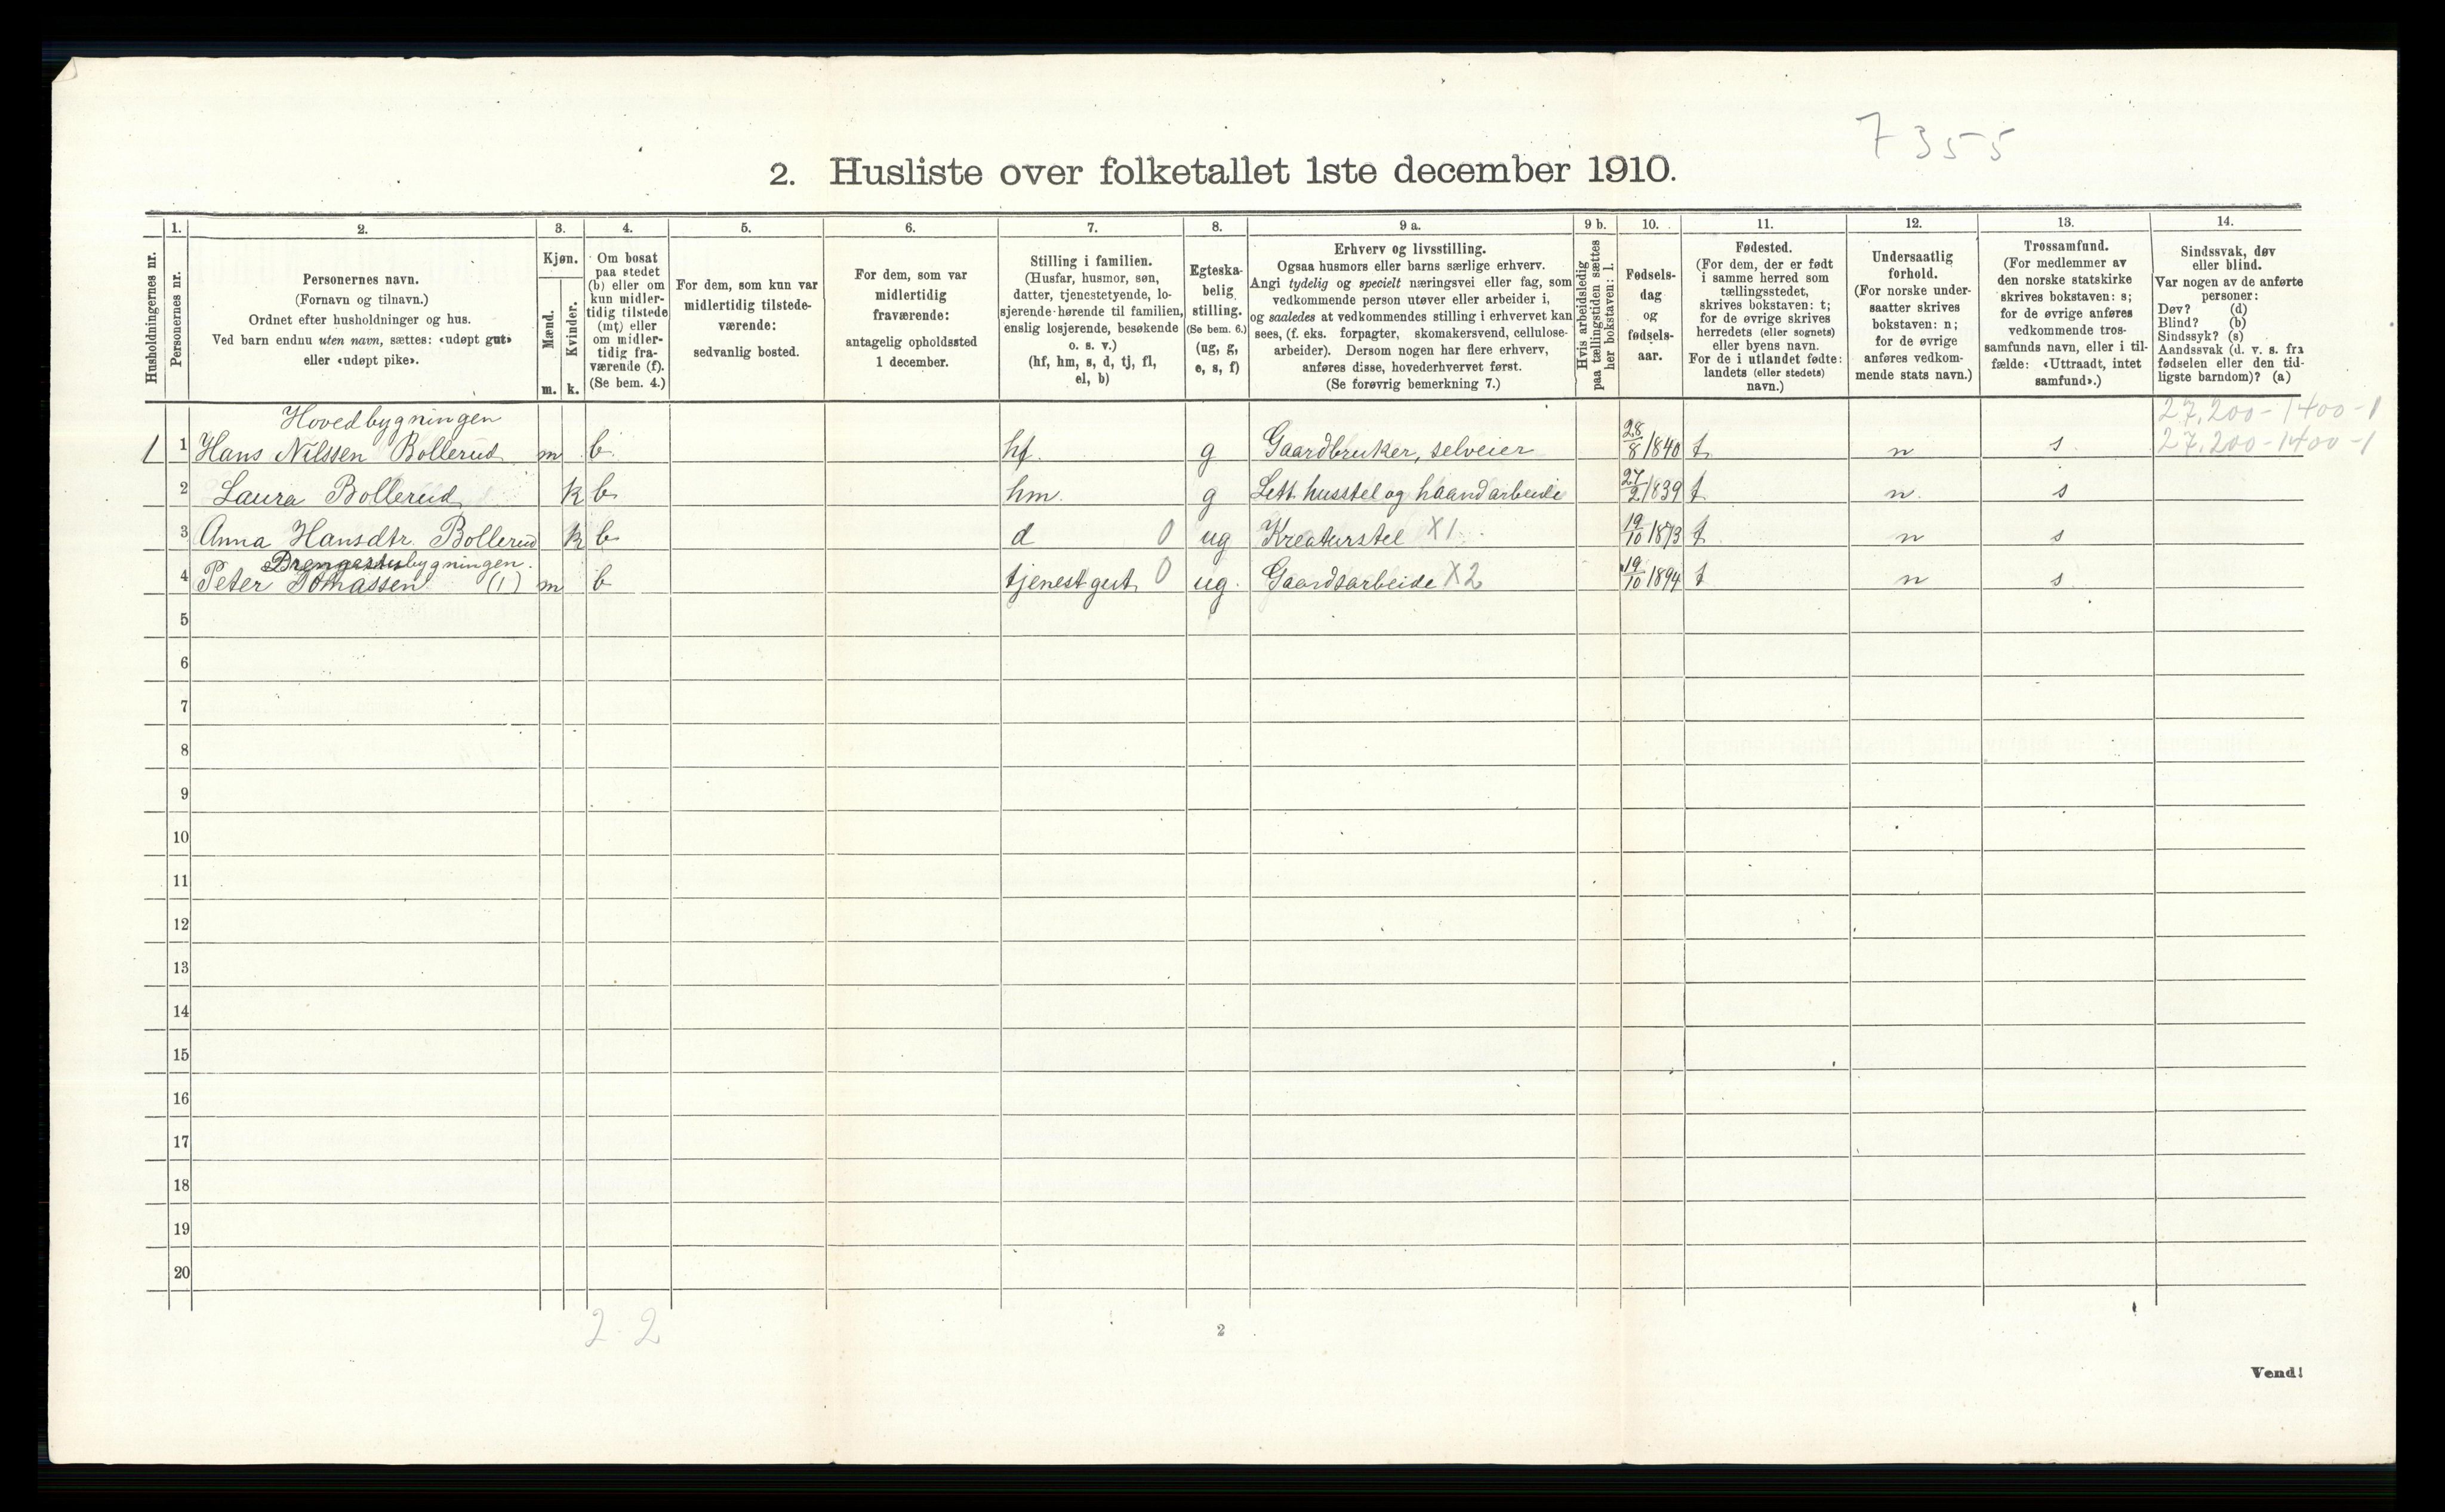 7355
2. Husliste over folketallet 1ste december 1910.
Husholdningernes nr.
1.
Personernes nr.
2.
Personernes navn.
(Fornavn og tilnavn.)
Ordnet efter husholdninger og hus.
Ved barn endnu uten navn, sættes: «udøpt gut»
eller «udøpt pike».
3.
Kjøn.
Mænd.
Kvinder.
m. k.
4.
Om bosat
paa stedet
(b) eller om
kun midler-
tidig tilstede
(mt) eller
om midler-
tidig fra-
værende (f).
(Se bem. 4.)
5.
For dem, som kun var
midlertidig tilstede-
værende:
sedvanlig bosted.
6.
For dem, som var
midlertidig
fraværende:
antagelig opholdssted
1 december.
7.
Stilling i familien.
(Husfar, husmor, søn,
datter, tjenestetyende, lo-
sjerende hørende til familien,
enslig losjerende, besøkende
o. s. v.)
(hf, hm, s, d, tj, fl,
el, b)
8.
Egteska-
belig
stilling.
(Se bem. 6.)
(ug, g,
e, s, f)
9 a.
Erhverv og livsstilling.
Ogsaa husmors eller barns særlige erhverv.
Angi tydelig og specielt næringsvei eller fag, som
vedkommende person utøver eller arbeider i,
og saaledes at vedkommendes stilling i erhvervet kan
sees, (f. eks. forpagter, skomakersvend, cellulose-
arbeider). Dersom nogen har flere erhverv,
anføres disse, hovederhvervet først.
(Se forøvrig bemerkning 7.)
9 b.
Hvis arbeidsledig
paa tællingstiden sættes
her bokstaven: l.
10.
Fødsels-
dag
og
fødsels-
aar.
11.
Fødested.
(For dem, der er født
i samme herred som
tællingsstedet,
skrives bokstaven: t;
for de øvrige skrives
herredets (eller sognets)
eller byens navn.
For de i utlandet fødte:
landets (eller stedets)
navn.)
12.
Undersaatlig
forhold.
(For norske under-
saatter skrives
bokstaven: n;
for de øvrige
anføres vedkom-
mende stats navn.)
13.
Trossamfund.
(For medlemmer av
den norske statskirke
skrives bokstaven: s;
for de øvrige anføres
vedkommende tros-
samfunds navn, eller i til-
fælde: «Uttraadt, intet
samfund».)
14.
Sindssvak, døv
eller blind.
Var nogen av de anførte
personer:
Døv? (d)
Blind? (b)
Sindssyk? (s)
Aandssvak (d. v. s. fra
fødselen eller den tid-
ligste barndom)? (a)
Hovedbygningen 27.200-1400-1
1 1 Hans Nilssen Bollerud m b hf. g Gaardbruker, selveier 28/8 1840 t n s 27.200-1400-1
2 Laura Bollerud k b hm. g Lett husstel og haandarbeide 27/2 1839 t n. s
3 Anna Hansdtr. Bollerud k b d 0 ug Kreaturstel X1 19/10 1873 t n s
Drengestubygningen.
4 Peter Tomassen (1) m b tjenestgut 0 ug. Gaardsarbeide X2 19/10 1894 t n s
5
6
7
8
9
10
11
12
13
14
15
16
17
18
19
20
2 2
2
Vend!